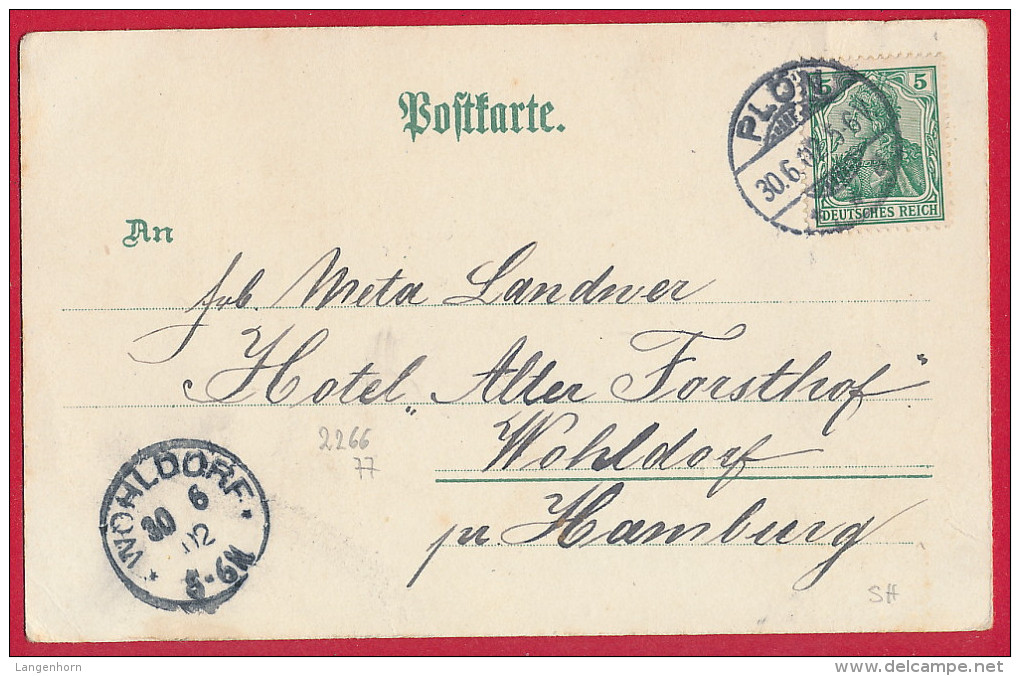 Postkarte.
5 5
DEUTSCHES REICH
PLÖN
30.6.02. 5-6N
An
frl. Meta Landwer
Hotel „Alter Forsthof“
Wohldorf
pr. Hamburg
2266
77
* WOHLDORF. *
30 6
02
5-6N
SH
Langenhorn
delcampe.net